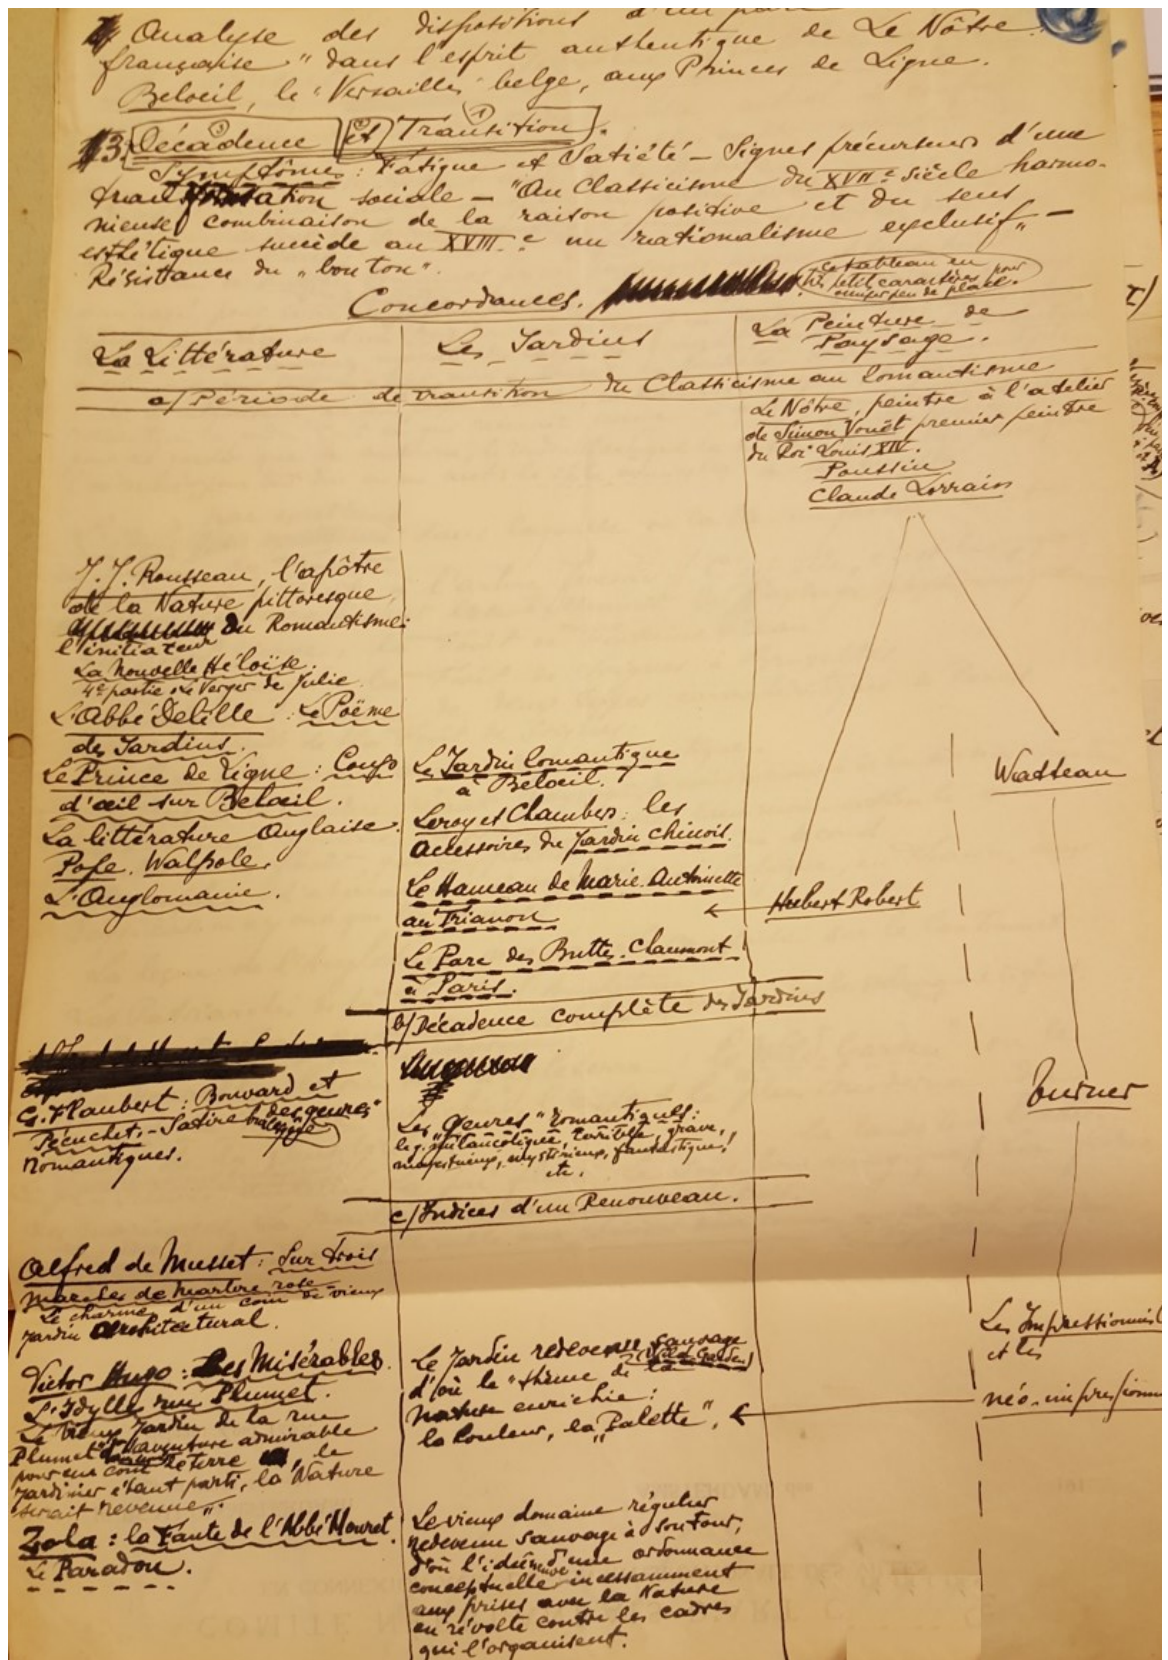 Analyse des dispositions d'un
française" dans l'esprit authentique de Le Nôtre.
Beloeil, le "Versailles" belge, aux Princes de Ligne.
3. Décadence et Transition.
Symptômes : Fatigue et Satiété - Signes précurseurs d'une
sociale - "Au Classicisme du XVIIe siècle harmo-
nieuse combinaison de la raison positive et du sens
esthétique succède au XVIII.e un rationalisme exclusif" -
Résistance du "bon ton".
Concordances.
ce tableau en
très petit caractères pour
occuper peu de place.
La Littérature
Les Jardins
La Peinture de
Paysage.
a/ Période de transition du Classicisme au Romantisme
Le Nôtre, peintre à l'atelier
de Simon Vouët premier peintre
du Roi Louis XIV.
Poussin
Claude Lorrain
J. J. Rousseau, l'apôtre
de la Nature pittoresque
du Romantisme:
l'initiateur
La Nouvelle Héloïse.
4e partie : Le Verger de Julie
L'Abbé Delille : Le Poëme
des Jardins.
Le Prince de Ligne : Coups
d'œil sur Beloeil.
La littérature Anglaise.
Pope. Walpole.
L'Anglomanie.
Le Jardin Romantique
à Beloeil.
Leroy et Chambers : les
accessoires du Jardin chinois.
Le Hameau de Marie-Antoinette
au Trianon
Le Parc des Buttes-Chaumont
à Paris.
Watteau
Hubert Robert
b/ Décadence complète des Jardins
G. Flaubert : Bouvard et
Pécuchet, - Satire des "genres"
romantiques.
Les "genres" romantiques :
le g. mélancolique, terrible, grave,
majestueux, mystérieux, fantastique !
etc.
Turner
c/ Indices d'un Renouveau.
Alfred de Musset : Sur trois
marches de marbre rose
Le charme d'un coin de vieux
jardin architectural.
Victor Hugo : Les Misérables.
L'Idylle rue Plumet.
Le vieux Jardin de la rue
Plumet aventure admirable
pour un coin de terre, le
jardinier étant parti, la Nature
était revenue".
Zola : la Faute de l'Abbé Mouret.
Le Paradou.
Le Jardin redevenu sauvage
(Wild Garden)
d'où le "thème de la
nature enrichie :
la Couleur, la "Palette".
Les Impressionnis
et les
néo-impressionn
Le vieux domaine régulier
redevenu sauvage à son tour,
d'où l'idée d'une ordonnance
conceptuelle incessamment
aux prises avec la Nature
en révolte contre les cadres
qui l'organisent.